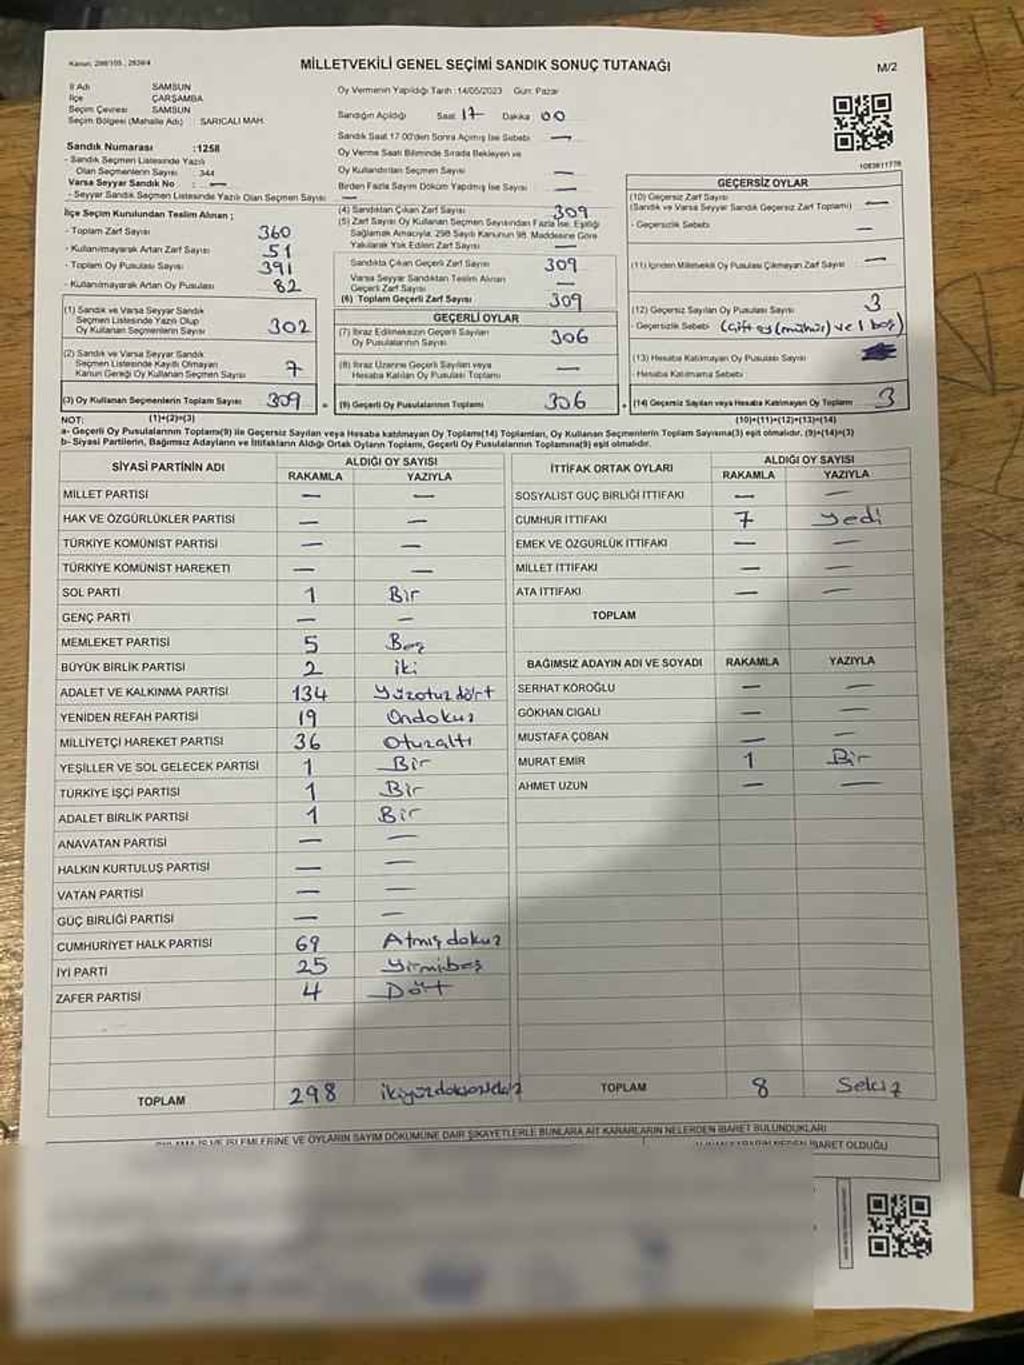 Kanun: 298/105., 2839/4
MİLLETVEKİLİ GENEL SEÇİMİ SANDIK SONUÇ TUTANAĞI
M/2
İl Adı SAMSUN
İlçe ÇARŞAMBA
Seçim Çevresi SAMSUN
Seçim Bölgesi (Mahalle Adı) : SARICALI MAH.
Oy Vermenin Yapıldığı Tarih :14/05/2023 Gün: Pazar
Sandığın Açıldığı Saat 17 Dakika 00
Sandık Saat 17.00'den Sonra Açılmış İse Sebebi —
Oy Verme Saati Bitiminde Sırada Bekleyen ve
Oy Kullandırılan Seçmen Sayısı —
Birden Fazla Sayım Döküm Yapılmış İse Sayısı —
1083811778
Sandık Numarası :1258
- Sandık Seçmen Listesinde Yazılı
Olan Seçmenlerin Sayısı : 344
Varsa Seyyar Sandık No : —
- Seyyar Sandık Seçmen Listesinde Yazılı Olan Seçmen Sayısı: —
İlçe Seçim Kurulundan Teslim Alınan ;
- Toplam Zarf Sayısı 360
- Kullanılmayarak Artan Zarf Sayısı 51
- Toplam Oy Pusulası Sayısı 391
- Kullanılmayarak Artan Oy Pusulası 82
(1) Sandık ve Varsa Seyyar Sandık
Seçmen Listesinde Yazılı Olup
Oy Kullanan Seçmenlerin Sayısı 302
(2) Sandık ve Varsa Seyyar Sandık
Seçmen Listesinde Kayıtlı Olmayan
Kanun Gereği Oy Kullanan Seçmen Sayısı 7
(3) Oy Kullanan Seçmenlerin Toplam Sayısı 309
(1)+(2)=(3)
(4) Sandıktan Çıkan Zarf Sayısı 309
(5) Zarf Sayısı Oy Kullanan Seçmen Sayısından Fazla İse, Eşitliği
Sağlamak Amacıyla, 298 Sayılı Kanunun 98. Maddesine Göre
Yakılarak Yok Edilen Zarf Sayısı —
Sandıkta Çıkan Geçerli Zarf Sayısı 309
Varsa Seyyar Sandıktan Teslim Alınan
Geçerli Zarf Sayısı —
(6) Toplam Geçerli Zarf Sayısı 309
GEÇERLİ OYLAR
(7) İtiraz Edilmeksizin Geçerli Sayılan
Oy Pusulalarının Sayısı 306
(8) İtiraz Üzerine Geçerli Sayılan veya
Hesaba Katılan Oy Pusulası Toplamı —
(9) Geçerli Oy Pusulalarının Toplamı 306
GEÇERSİZ OYLAR
(10) Geçersiz Zarf Sayısı
(Sandık ve Varsa Seyyar Sandık Geçersiz Zarf Toplamı) —
- Geçersizlik Sebebi —
(11) İçinden Milletvekili Oy Pusulası Çıkmayan Zarf Sayısı —
(12) Geçersiz Sayılan Oy Pusulası Sayısı 3
- Geçersizlik Sebebi (Çift oy (mühür) ve 1 boş)
(13) Hesaba Katılmayan Oy Pusulası Sayısı
- Hesaba Katılmama Sebebi
(14) Geçersiz Sayılan veya Hesaba Katılmayan Oy Toplamı 3
(10)+(11)+(12)+(13)=(14)
NOT:
a- Geçerli Oy Pusulalarının Toplamı(9) ile Geçersiz Sayılan veya Hesaba katılmayan Oy Toplamı(14) Toplamları, Oy Kullanan Seçmenlerin Toplam Sayısına(3) eşit olmalıdır. (9)+(14)=(3)
b- Siyasi Partilerin, Bağımsız Adayların ve İttifakların Aldığı Ortak Oyların Toplamı, Geçerli Oy Pusulalarının Toplamına(9) eşit olmalıdır.
SİYASİ PARTİNİN ADI ALDIĞI OY SAYISI
RAKAMLA YAZIYLA
MİLLET PARTİSİ — —
HAK VE ÖZGÜRLÜKLER PARTİSİ — —
TÜRKİYE KOMÜNİST PARTİSİ — —
TÜRKİYE KOMÜNİST HAREKETİ — —
SOL PARTİ 1 Bir
GENÇ PARTİ — —
MEMLEKET PARTİSİ 5 Beş
BÜYÜK BİRLİK PARTİSİ 2 iki
ADALET VE KALKINMA PARTİSİ 134 Yüzotuzdört
YENİDEN REFAH PARTİSİ 19 Ondokuz
MİLLİYETÇİ HAREKET PARTİSİ 36 Otuzaltı
YEŞİLLER VE SOL GELECEK PARTİSİ 1 Bir
TÜRKİYE İŞÇİ PARTİSİ 1 Bir
ADALET BİRLİK PARTİSİ 1 Bir
ANAVATAN PARTİSİ — —
HALKIN KURTULUŞ PARTİSİ — —
VATAN PARTİSİ — —
GÜÇ BİRLİĞİ PARTİSİ — —
CUMHURİYET HALK PARTİSİ 69 Atmışdokuz
İYİ PARTİ 25 Yirmibeş
ZAFER PARTİSİ 4 Dört
TOPLAM 298 ikiyüzdoksansekiz
İTTİFAK ORTAK OYLARI ALDIĞI OY SAYISI
RAKAMLA YAZIYLA
SOSYALİST GÜÇ BİRLİĞİ İTTİFAKI — —
CUMHUR İTTİFAKI 7 Yedi
EMEK VE ÖZGÜRLÜK İTTİFAKI — —
MİLLET İTTİFAKI — —
ATA İTTİFAKI — —
TOPLAM
BAĞIMSIZ ADAYIN ADI VE SOYADI RAKAMLA YAZIYLA
SERHAT KÖROĞLU — —
GÖKHAN CIGALI — —
MUSTAFA ÇOBAN — —
MURAT EMİR 1 Bir
AHMET UZUN — —
TOPLAM 8 Sekiz
İŞLEMLERİNE VE OYLARIN SAYIM DÖKÜMÜNE DAİR ŞİKAYETLERLE BUNLARA AİT KARARLARIN NELERDEN İBARET BULUNDUKLARI
İBARET OLDUĞU